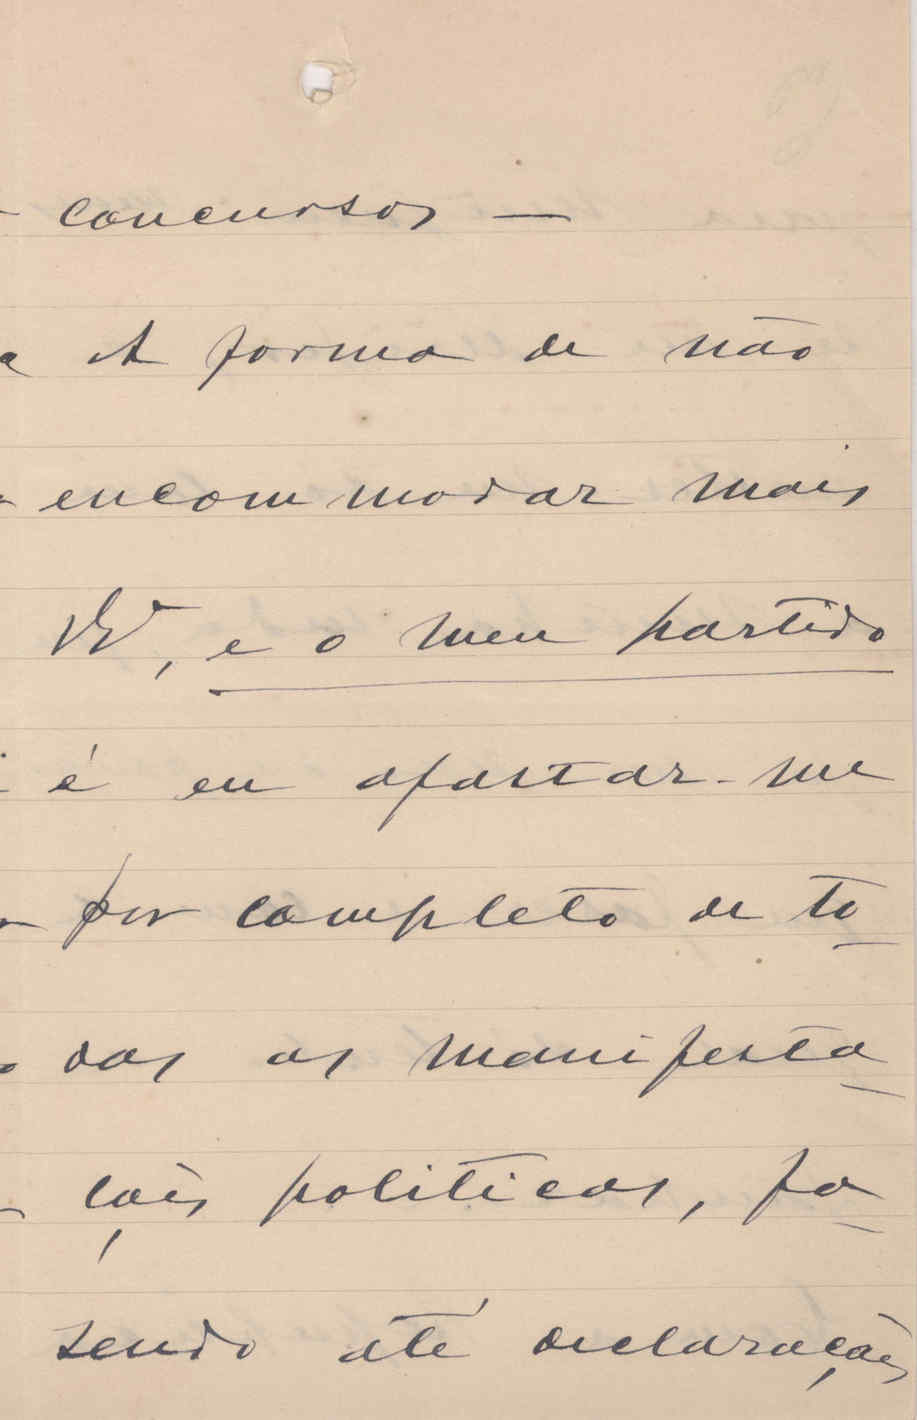 concursos —
A forma de não
encommodar mais
VEª, e o meu partido
é eu afastar-me
por completo de to
das as manifesta
ções politicas, fa
sendo até declarações